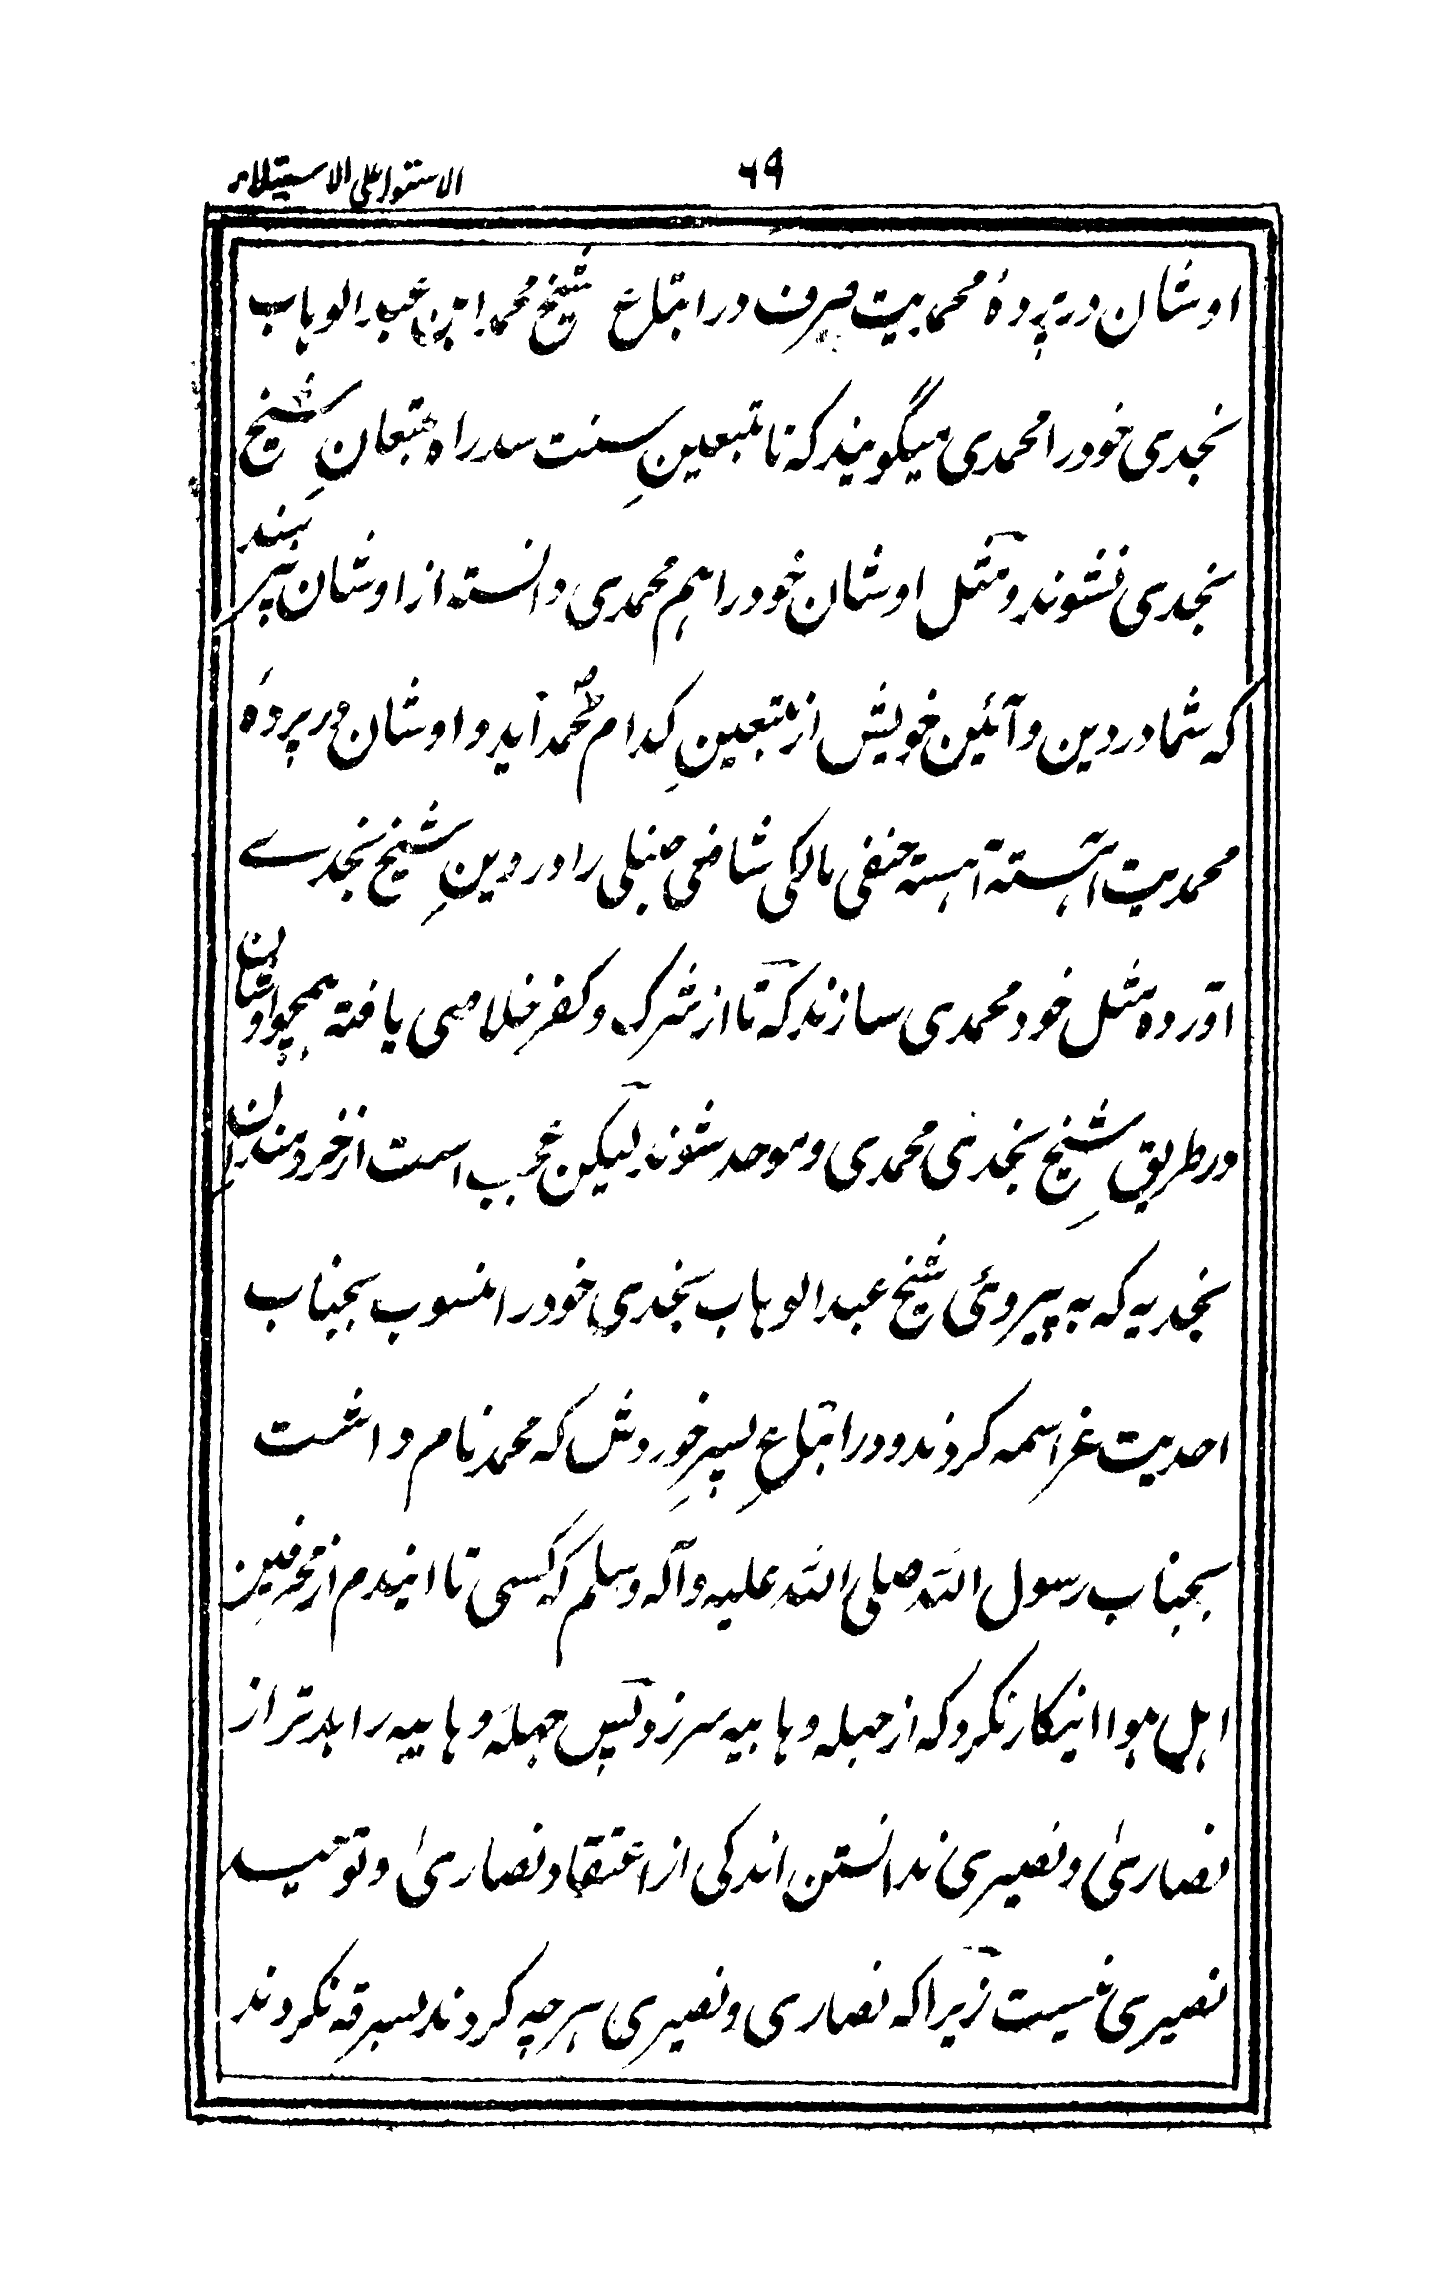 ۶۹
الاستوا علی الاستیلاء
اوشان در پردهٔ محمدیت صرف در اتباع شیخ محمد ابن عبد الوہاب
نجدی خود را محمدی میگویند کہ تا متبعینِ سنت سدراہ متبعانِ شیخ
نجدی نشوند و مثل اوشان خود را ہم محمدی دانستہ از اوشان نپرسند
کہ شما در دین و آئین خویش از متبعینِ کدام محمد آید و اوشان در پردهٔ
محمدیت آہستہ آہستہ حنفی مالکی شافعی حنبلی را در دینِ شیخ نجدے
آوردہ مثل خود محمدی سازند کہ تا از شرک و کفر خلاصی یافتہ ہمچو اوشان
در طریقِ شیخ نجدی محمدی و موحد شوند لیکن عجب است از خردمندان
نجدیہ کہ بہ پیروئی شیخ عبد الوہاب نجدی خود را منسوب بجناب
احدیت عز اسمہ کردند و در اتباعِ پسرِ خوردش کہ محمد نام داشت
بجناب رسول اللہ صلی اللہ علیہ و آلہ وسلم کہ کسی تا ایندم از محرفین
اہل ہوا اینکار نکرد کہ از جہلہ وہابیہ سرزد پس جہلہ وہابیہ را بدتر از
نصاریٰ و نصیری ندانستن اندکی از اعتقاد نصاریٰ و توحید
نصیری نیست زیرا کہ نصاری و نصیری ہرچہ کردند بسرقہ نکردند